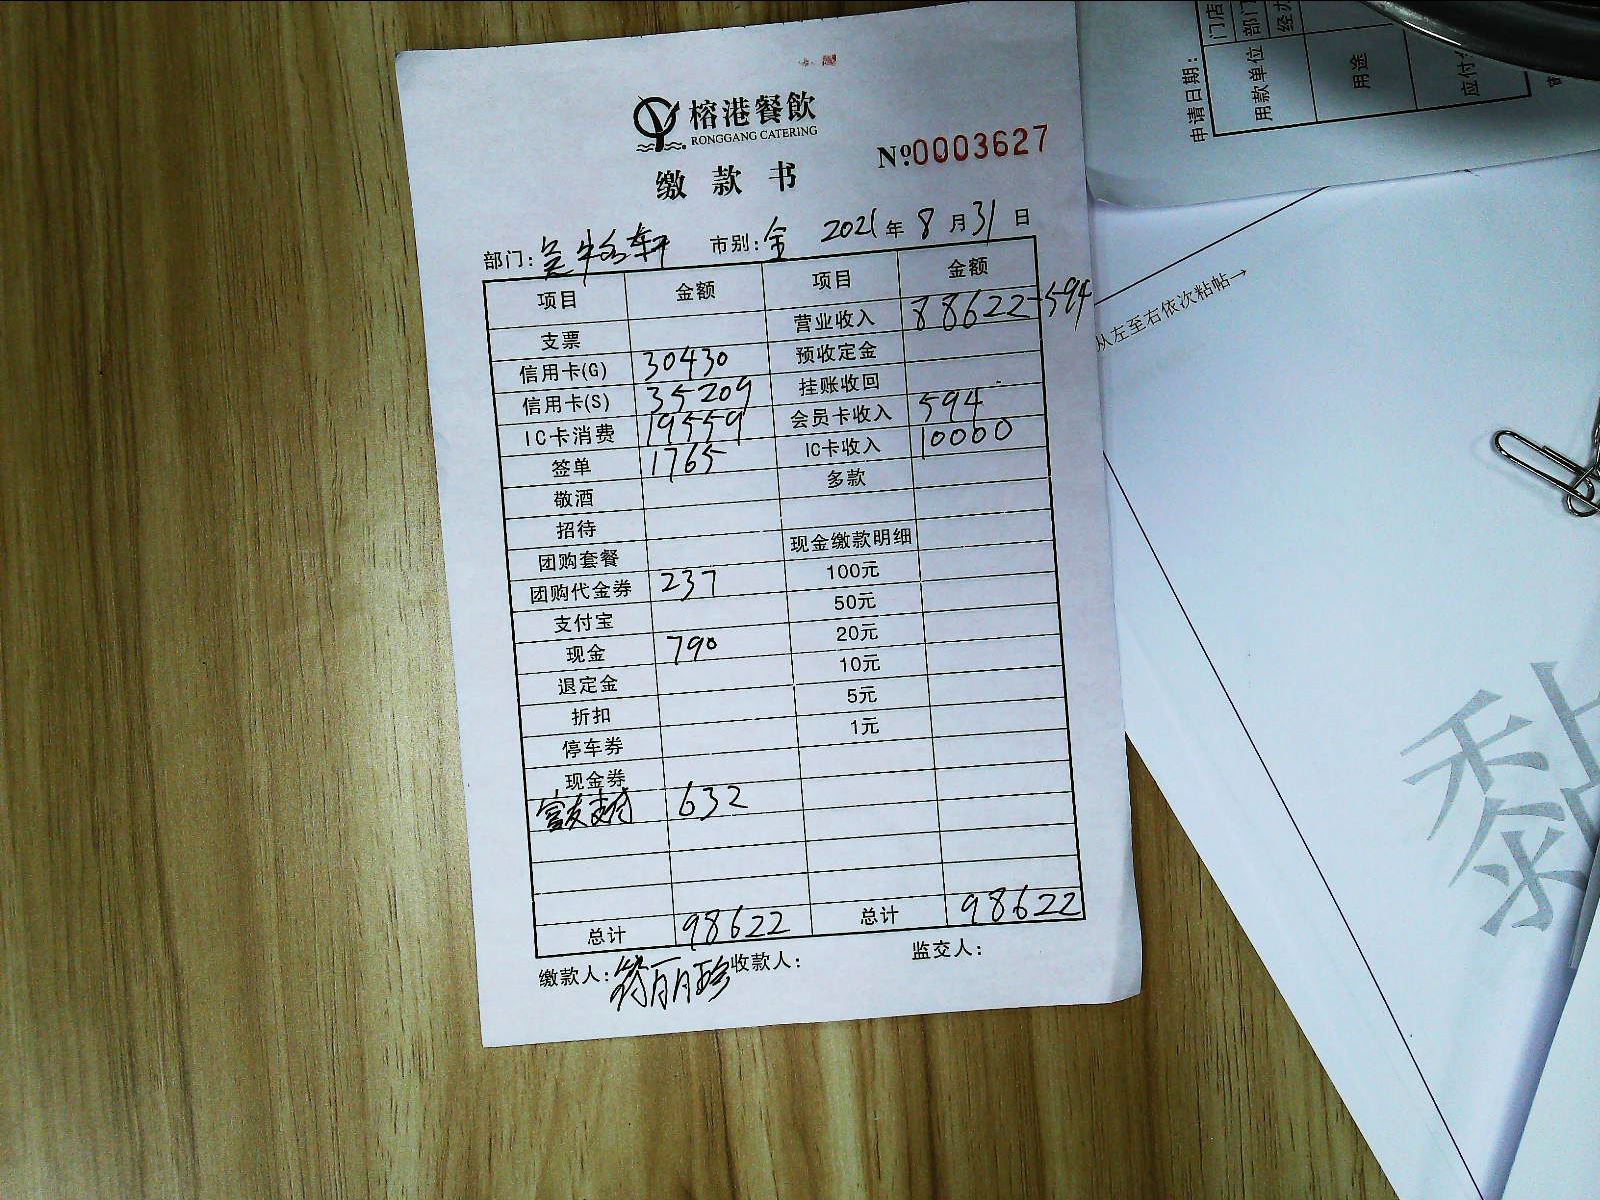 榕港餐飲
RONGGANG CATERING
№0003627
缴款书
部门: 市别:全 2021年8月31日
项目 金额 项目 金额
支票 营业收入 88622-594
信用卡(G) 30430 预收定金
信用卡(S) 35209 挂账收回
IC卡消费 19559 会员卡收入 594
签单 1765 IC卡收入 10000
敬酒 多款
招待
团购套餐 现金缴款明细
团购代金券 237 100元
支付宝 50元
现金 790 20元
退定金 10元
折扣 5元
停车券 1元
现金券
富友支付 632
总计 98622 总计 98622
缴款人:符丽珍 收款人: 监交人:
申请日期:
门店
部门
用款单位
用途
从左至右依次粘帖→
黏